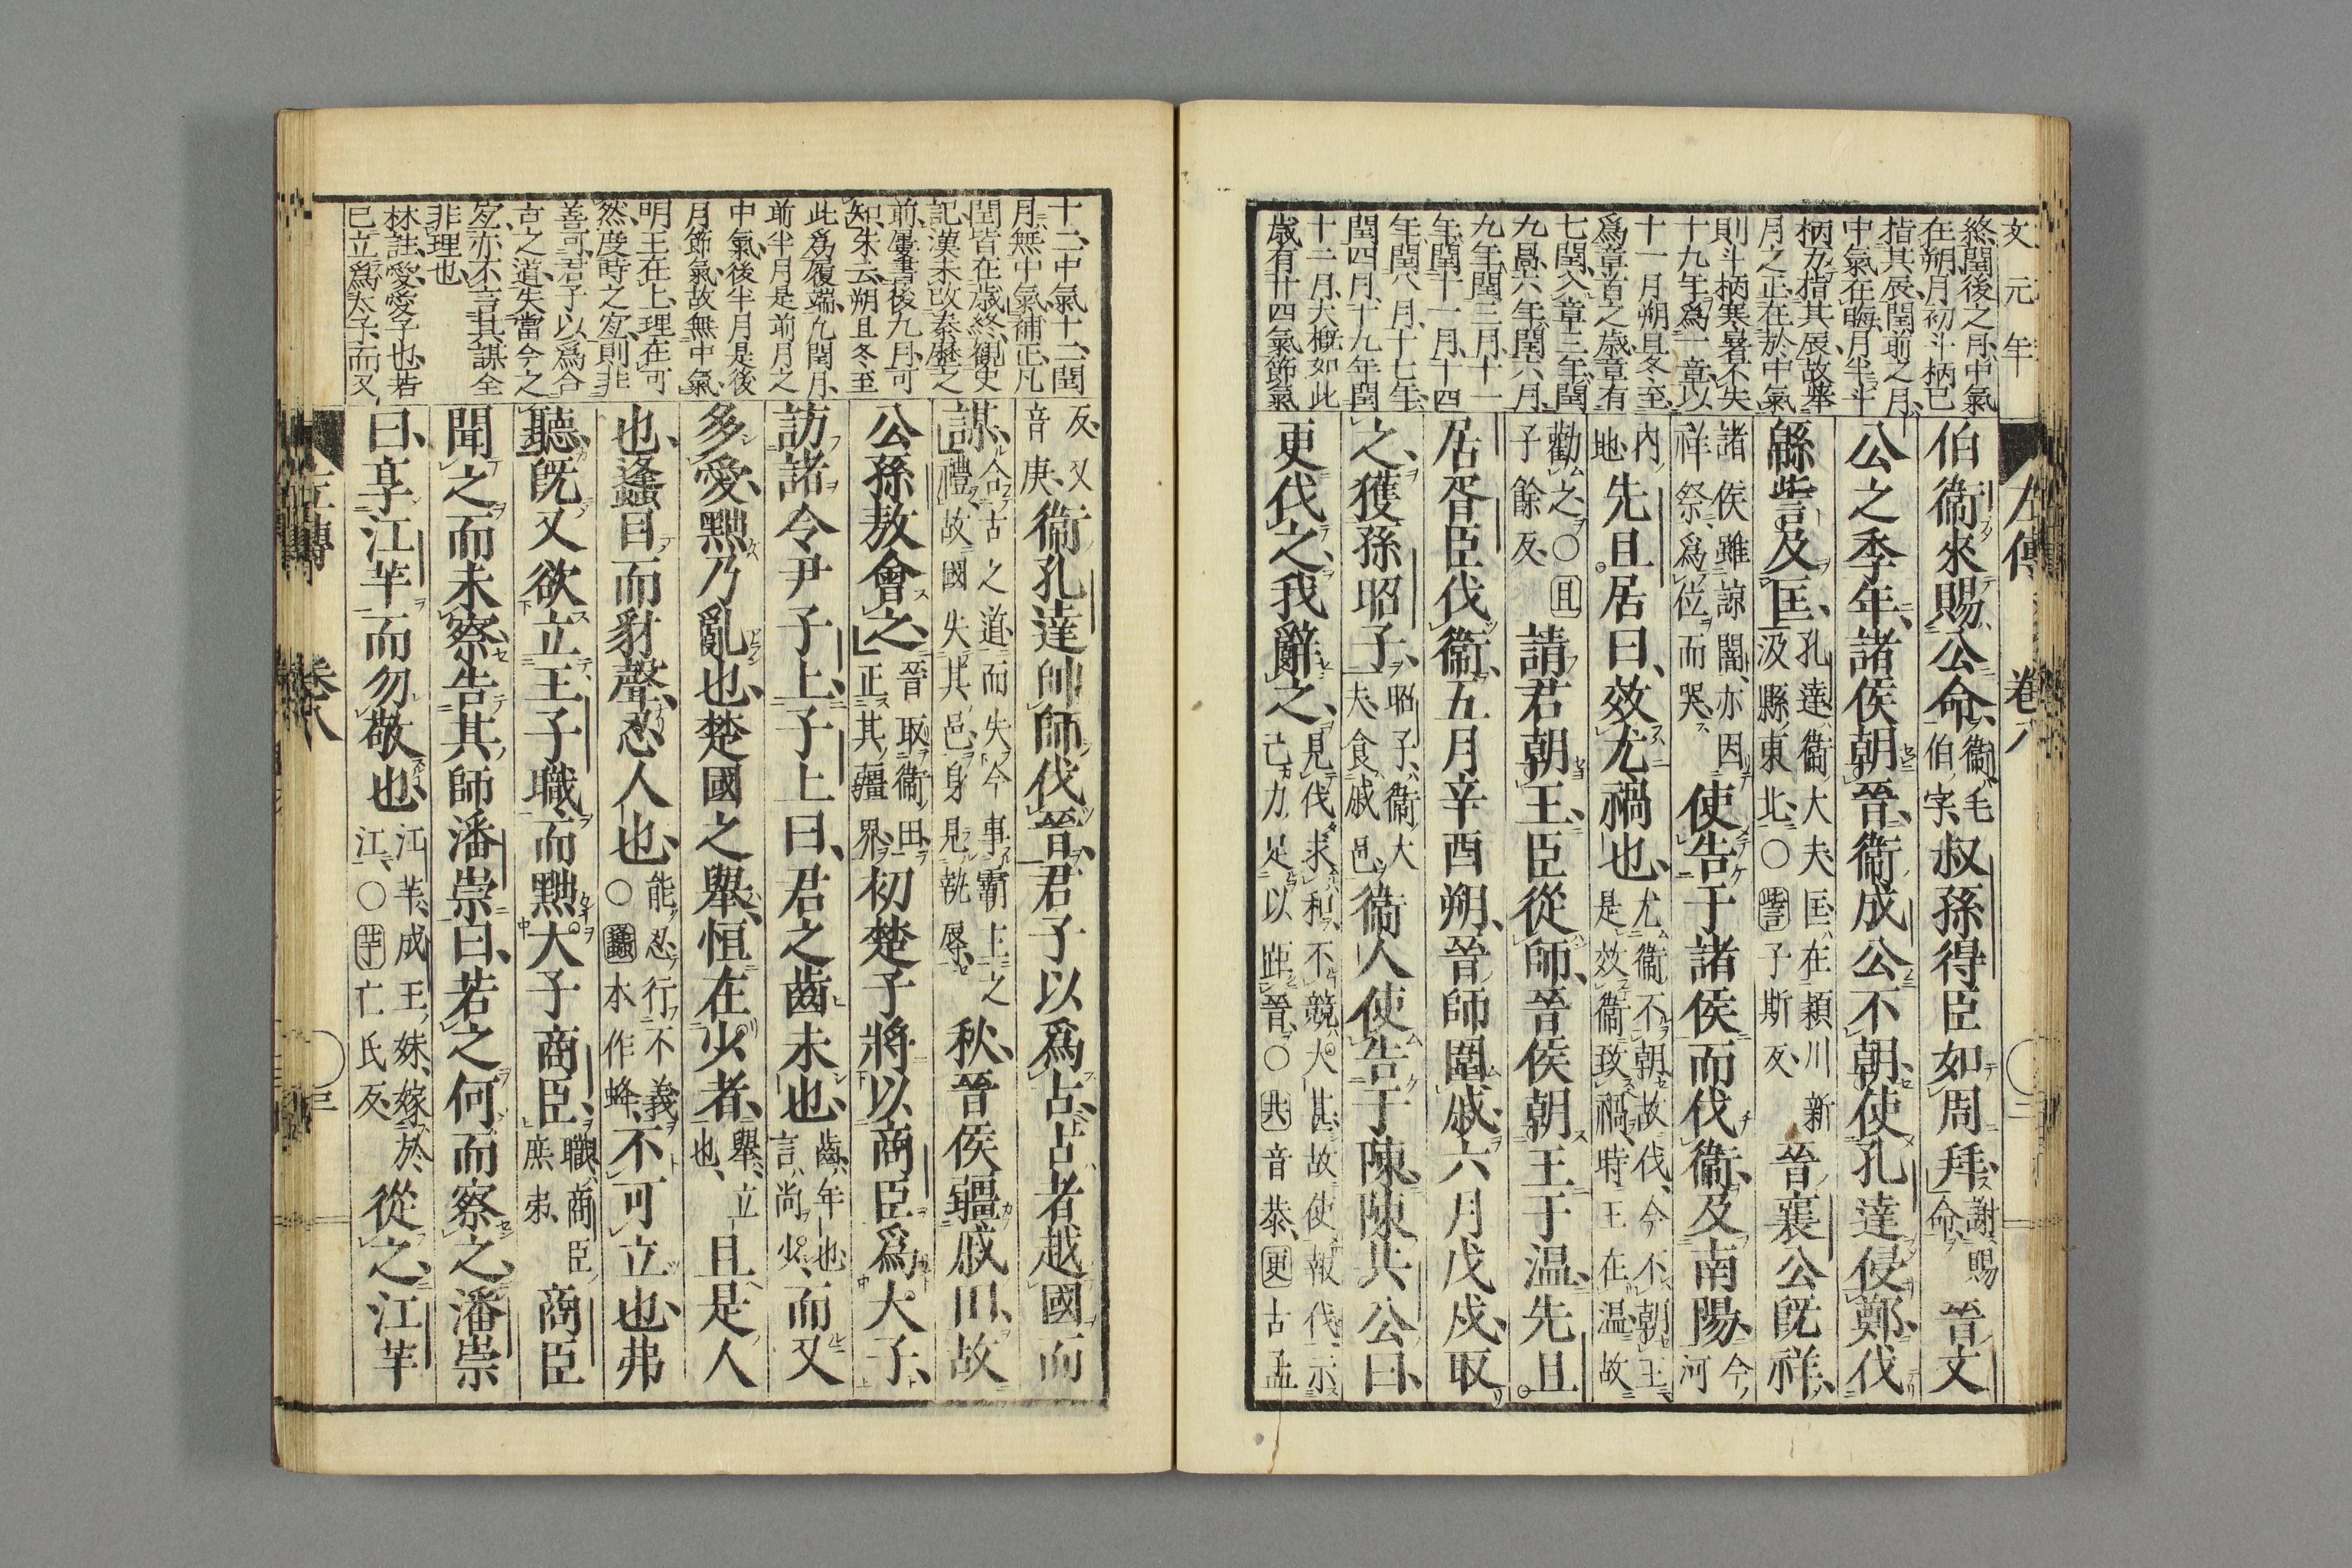 文元年
終閏後之月中氣
在朔月初斗柄已
指其辰閏前之月
中氣在晦月半斗
柄方指其辰故舉
月之正在於中氣
則斗柄寒暑不失
十九年爲一章以
十一月朔旦冬至
爲章首之歲章有
七閏入章三年閏
九月六年閏六月
九年閏三月十一
年閏十一月十四
年閏八月十七年
閏四月十九年閏
十二月大概如此
歲有廿四氣節氣
左傳 卷八 二
伯衞來賜公命衞毛伯字叔孫得臣如周拜謝賜命晉文
公之季年諸侯朝晉衞成公不朝使孔達侵鄭伐
緜訾及匡孔達衞大夫匡在潁川新汲縣東北○訾子斯反晉襄公旣祥
諸侯雖諒闇亦因祥祭爲位而哭使告于諸侯而伐衞及南陽今河
內地先且居曰效尤禍也尤衞不朝故伐今不朝王是效衞致禍時王在溫故
勸之○且子餘反請君朝王臣從師晉侯朝王于溫先且
居胥臣伐衞五月辛酉朔晉師圍戚六月戊戌取
之獲孫昭子昭子衞大夫食戚邑衞人使告于陳陳共公曰
更伐之我辭之見伐求和不競大甚故使報伐示己力足以距晉○共音恭更古孟
十二中氣十二閏
月無中氣補正凡
閏皆在歲終觀史
記漢未改秦曆之
前屢書後九月可
知朱云朔旦冬至
此爲履端九閏月
前半月是前月之
中氣後半月是後
月節氣故無中氣
明王在上理在可
然度時之宜則非
善可君子以爲合
古之道失當今之
宜亦不言其謀全
非理也
林註愛愛子也若
已立爲太子而又
反又音庚衞孔達帥師伐晉君子以爲古古者越國而
謀合古之道而失今事霸主之禮故國失其邑身見執辱秋晉侯疆戚田故
公孫敖會之晉取衞田正其疆界初楚子將以商臣爲大子
訪諸令尹子上子上曰君之齒未也齒年也言尚少而又
多愛黜乃亂也楚國之舉恒在少者舉立也且是人
也蠭目而豺聲忍人也能忍行不義○蠭本作蜂不可立也弗
聽旣又欲立王子職而黜大子商臣職商臣庶弟商臣
聞之而未察告其師潘崇曰若之何而察之潘崇
曰享江羋而勿敬也江羋成王妹嫁於江○羋亡氏反從之江羋
左傳 卷八 三